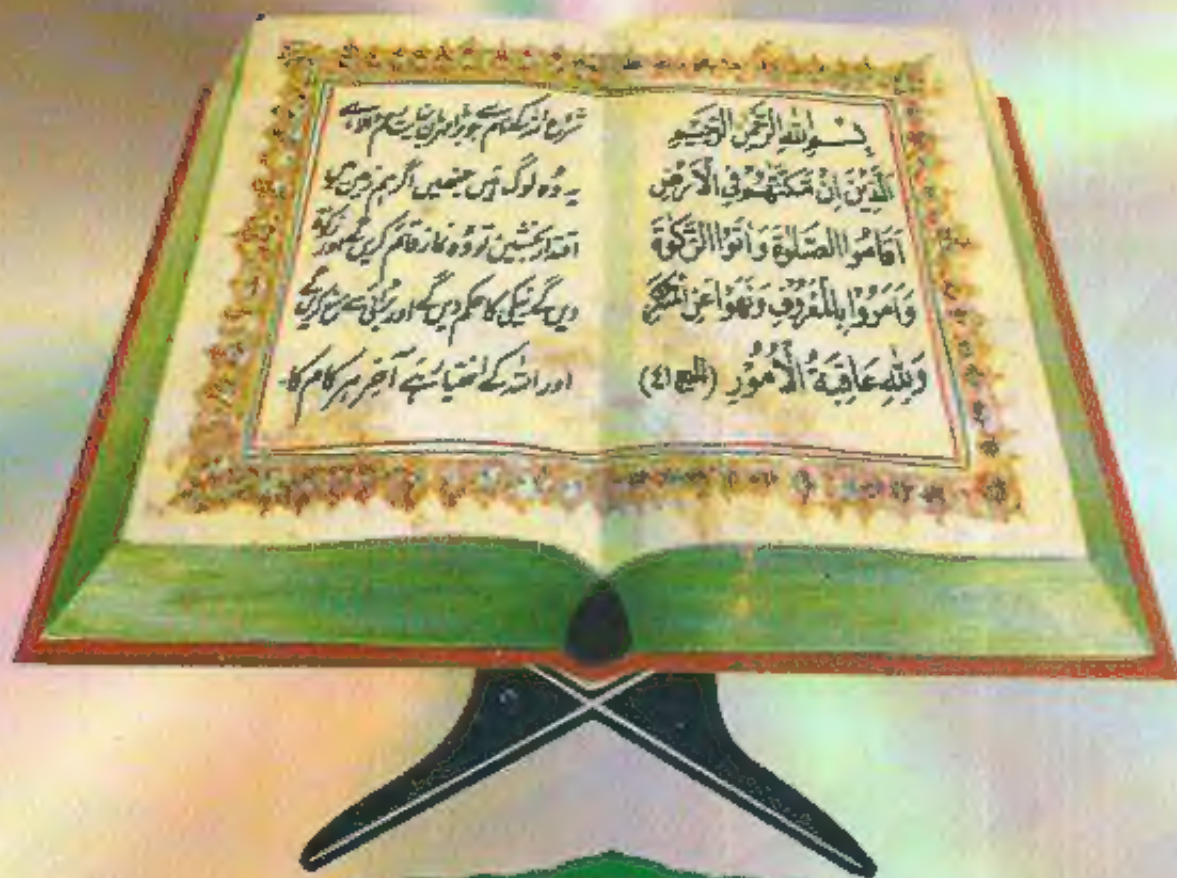 بِسْمِ اللهِ الرَّحْمٰنِ الرَّحِيْمِ
الَّذِيْنَ اِنْ مَّكَّنّٰهُمْ فِي الْاَرْضِ
اَقَامُوا الصَّلٰوةَ وَاٰتَوُا الزَّكٰوةَ
وَاَمَرُوْا بِالْمَعْرُوْفِ وَنَهَوْا عَنِ الْمُنْكَرِ
وَلِلّٰهِ عَاقِبَةُ الْاُمُوْرِ (الحج ٤١)
شروع اللہ کے نام سے جو بڑا مہربان نہایت رحم والا ہے
یہ وہ لوگ ہیں جنھیں اگر ہم زمین میں
اقتدار بخشیں تو وہ نماز قائم کریں گے اور زکوٰۃ
دیں گے نیکی کا حکم دیں گے اور برائی سے منع کریں گے
اور اللہ کے اختیار میں ہے آخر ہر کام کا۔